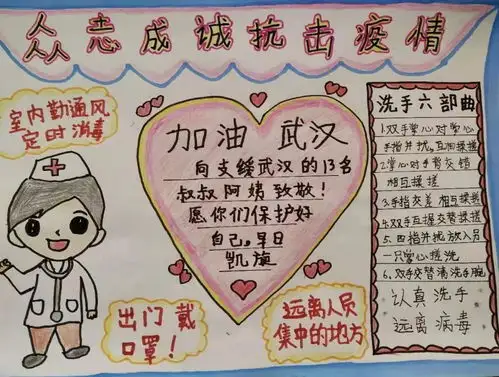 众志成诚抗击疫情
室内勤通风
定时消毒
加油 武汉
向支缓武汉的13名
叔叔阿姨致敬!
愿你们保护好
自己,早日
凯旋
出门戴
口罩!
远离人员
集中的地方
洗手六部曲
1.双手掌心对掌心
手指并拢,互相揉搓
2.掌心对手背交错
相互揉搓
3.手指交差 相互揉搓
4.双手互握交替揉搓
5.四指并拢放入另
一只掌心搓洗
6.双手交替清洗手腕
认真洗手
远离病毒